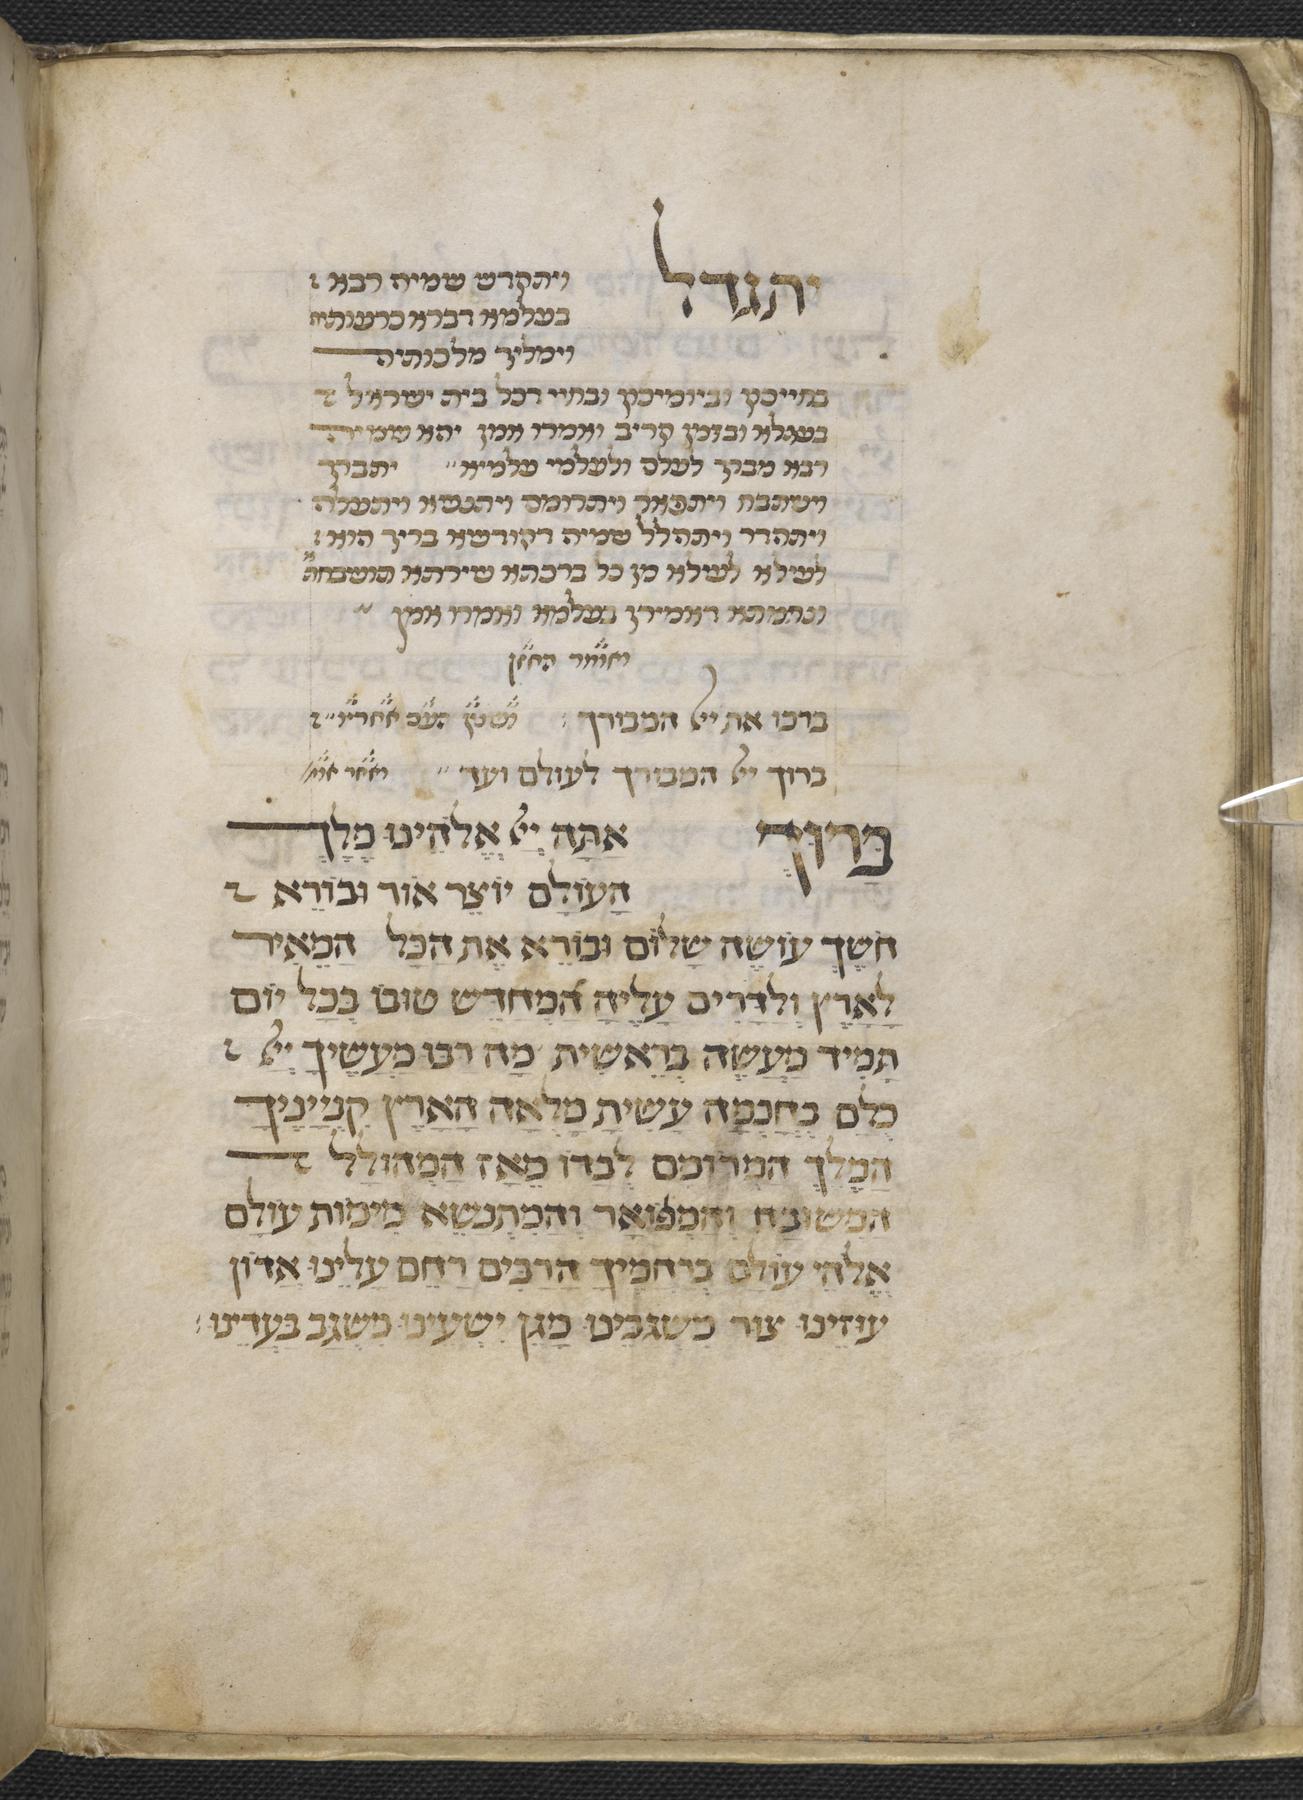 יתגדל ויתקדש שמיה רבא
בעלמא דברא כרעותיה
וימליך מלכותיה
בחייכון וביומיכון ובחיי דכל בית ישראל
בעגלא ובזמן קריב ואמרו אמן יהא שמיה
רבא מברך לעלם ולעלמי עלמיא יתברך
וישתבח ויתפאר ויתרומם ויתנשא ויתעלה
ויתהדר ויתהלל שמיה דקודשא בריך הוא
לעילא לעילא מן כל ברכתא שירתא תושבחתא
ונחמתא דאמירן בעלמא ואמרו אמן
ואומר החזן
ברכו את יי המבורך העם אחריו
ברוך יי המבורך לעולם ועד
בָּרוּךְ אַתָּה יְיָ אֱלֹהֵינוּ מֶלֶךְ
הָעוֹלָם יוֹצֵר אוֹר וּבוֹרֵא
חֹשֶׁךְ עוֹשֶׂה שָׁלוֹם וּבוֹרֵא אֶת הַכֹּל הַמֵּאִיר
לָאָרֶץ וְלַדָּרִים עָלֶיהָ הַמְחַדֵּשׁ טוּבוֹ בְּכָל יוֹם
תָּמִיד מַעֲשֵׂה בְרֵאשִׁית מָה רַבּוּ מַעֲשֶׂיךָ יְיָ
כֻּלָּם בְּחָכְמָה עָשִׂיתָ מָלְאָה הָאָרֶץ קִנְיָינֶיךָ
הַמֶּלֶךְ הַמְרוֹמָם לְבַדּוֹ מֵאָז הַמְהוּלָּל
הַמְשׁוּבָּח וְהַמְפוֹאָר וְהַמִּתְנַשֵּׂא מִימוֹת עוֹלָם
אֱלֹהֵי עוֹלָם בְּרַחֲמֶיךָ הָרַבִּים רַחֵם עָלֵינוּ אֲדוֹן
עוּזֵּינוּ צוּר מִשְׂגַּבֵּינוּ מָגֵן יִשְׁעֵינוּ מִשְׂגָּב בַּעֲדֵינוּ׃